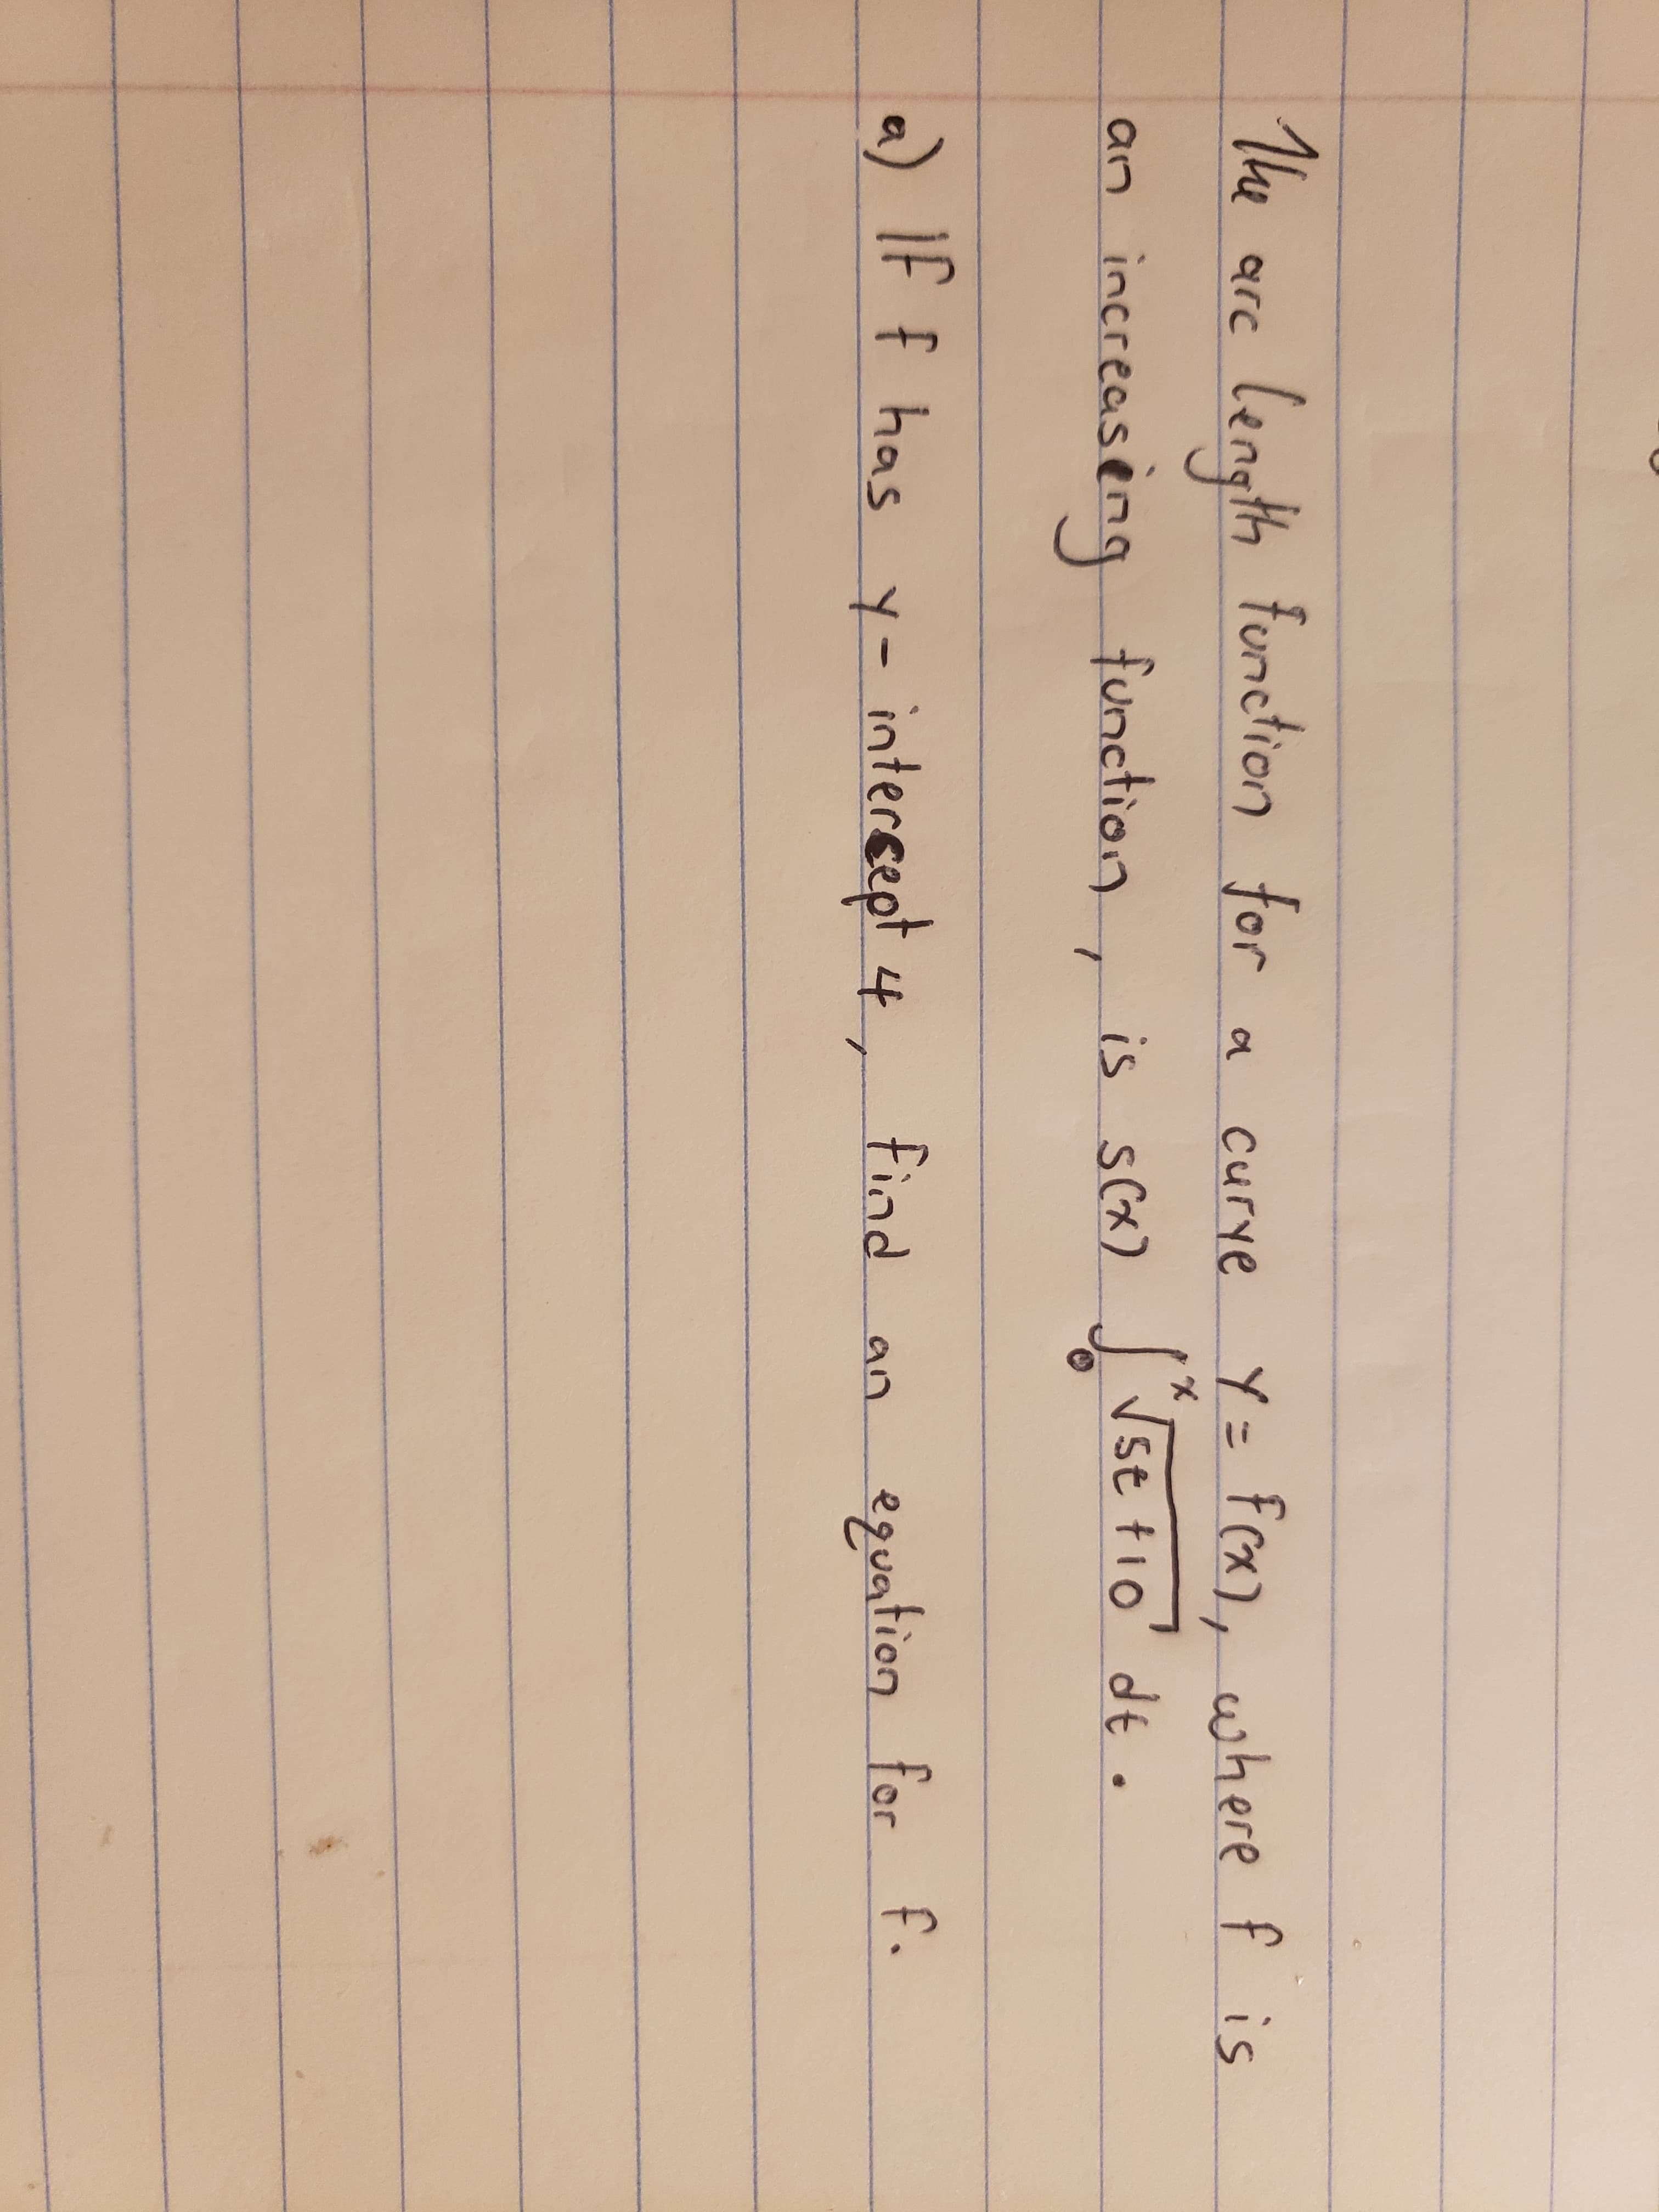 The arc length function for a curve y = f(x), where f is
an increasing function, is s(x) ∫₀ˣ √(5t + 10) dt.
a) If f has y-intercept 4, find an equation for f.